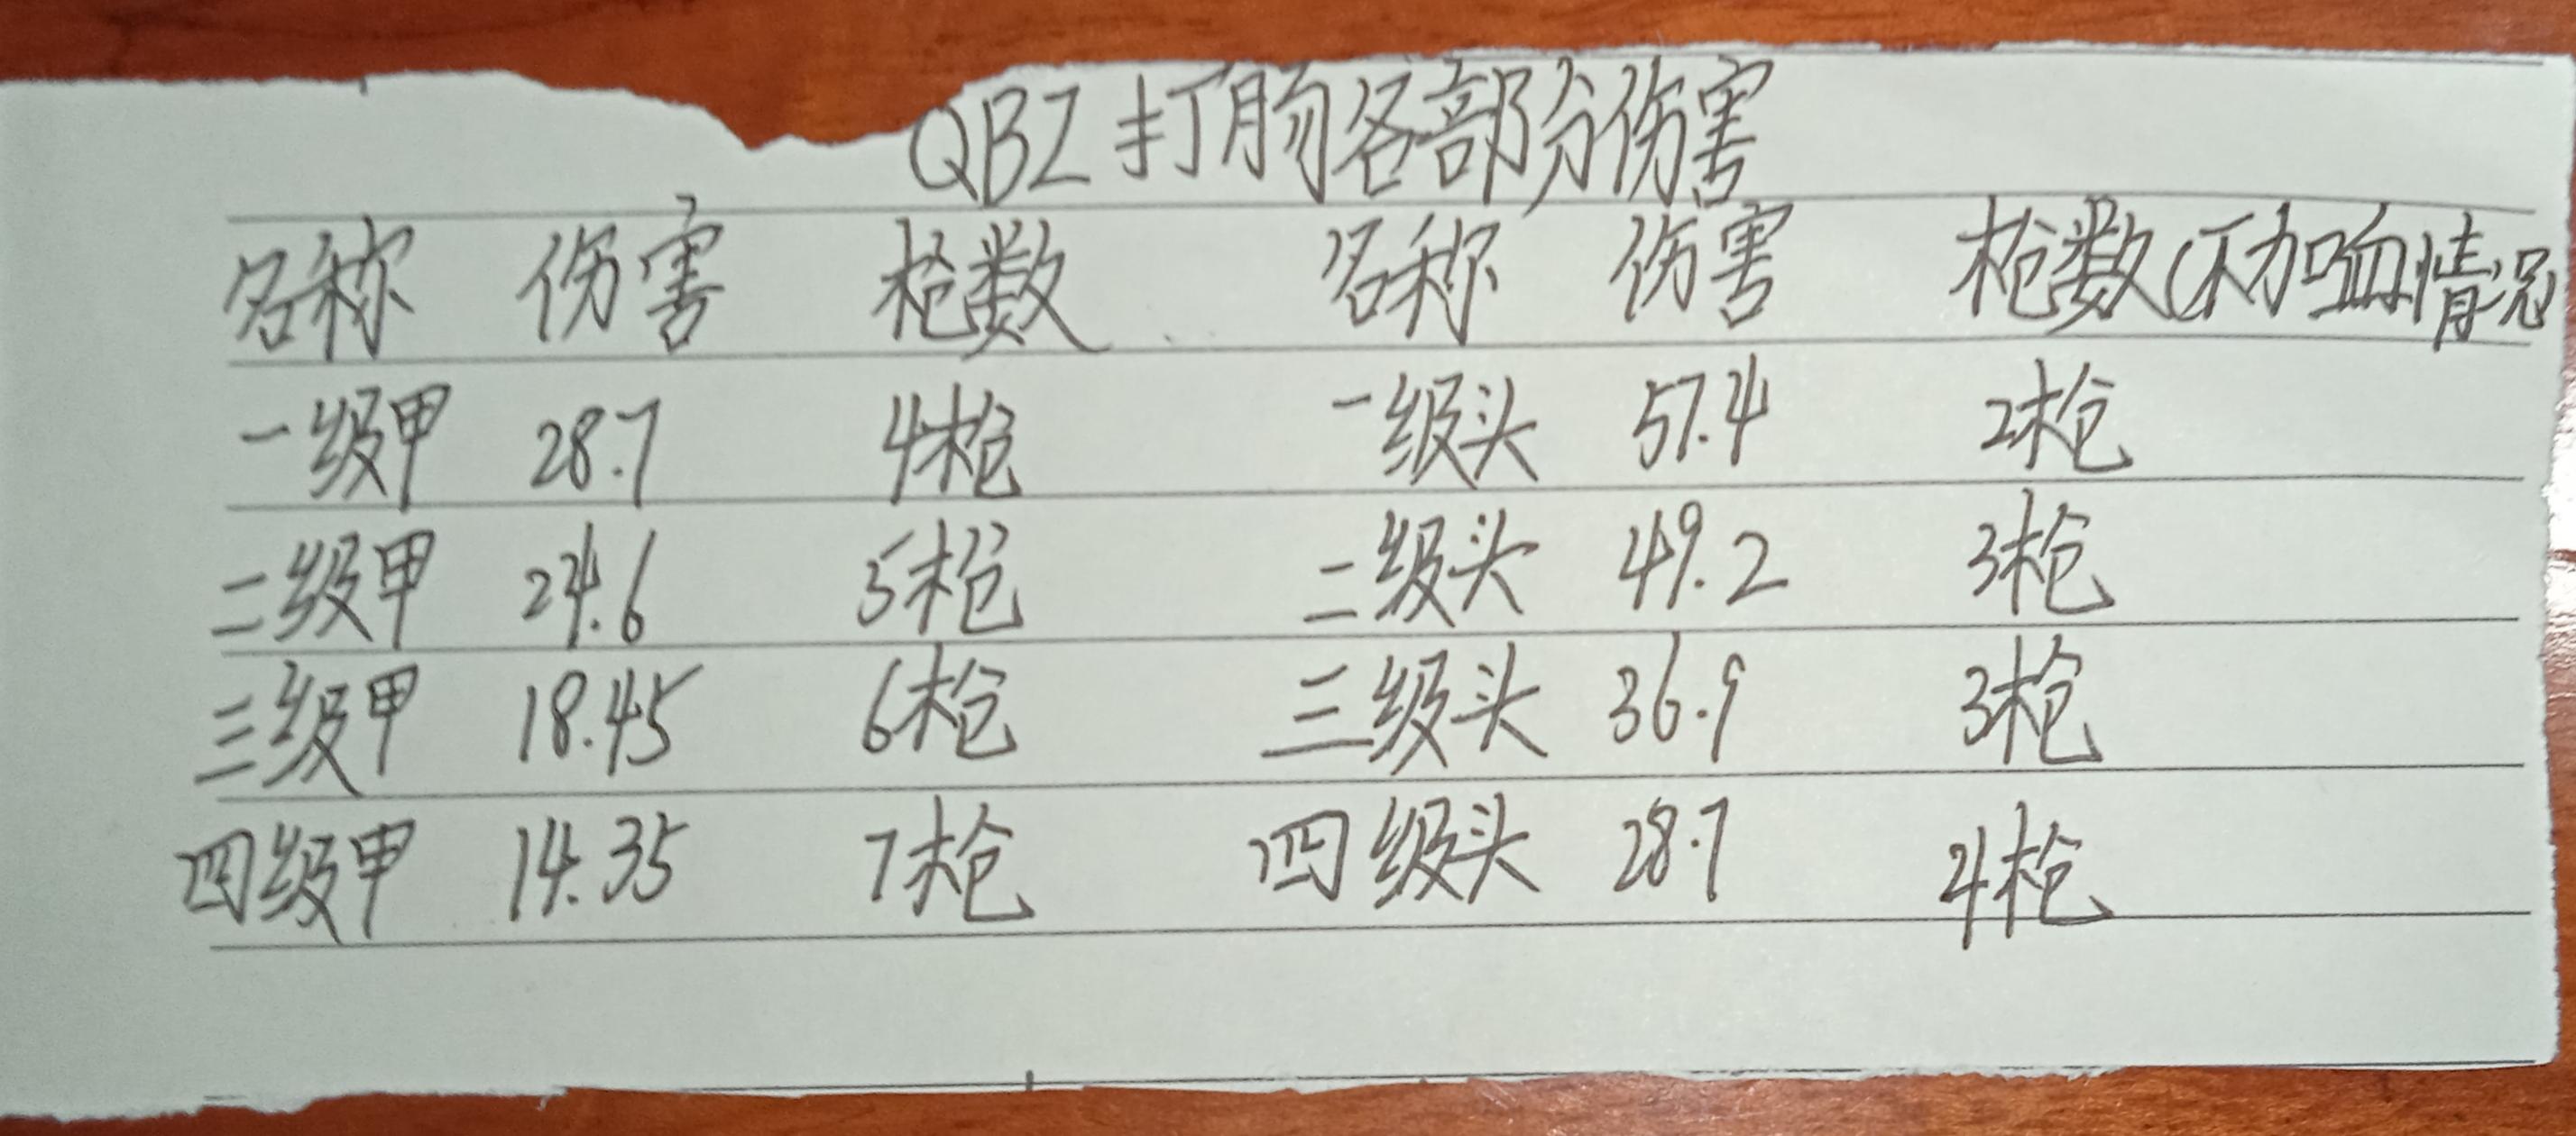 QBZ打肠各部分伤害
名称 伤害 枪数 名称 伤害 枪数(不加血情况
一级甲 28.7 4枪 一级头 57.4 2枪
二级甲 24.6 5枪 二级头 49.2 3枪
三级甲 18.45 6枪 三级头 36.9 3枪
四级甲 14.35 7枪 四级头 28.7 4枪